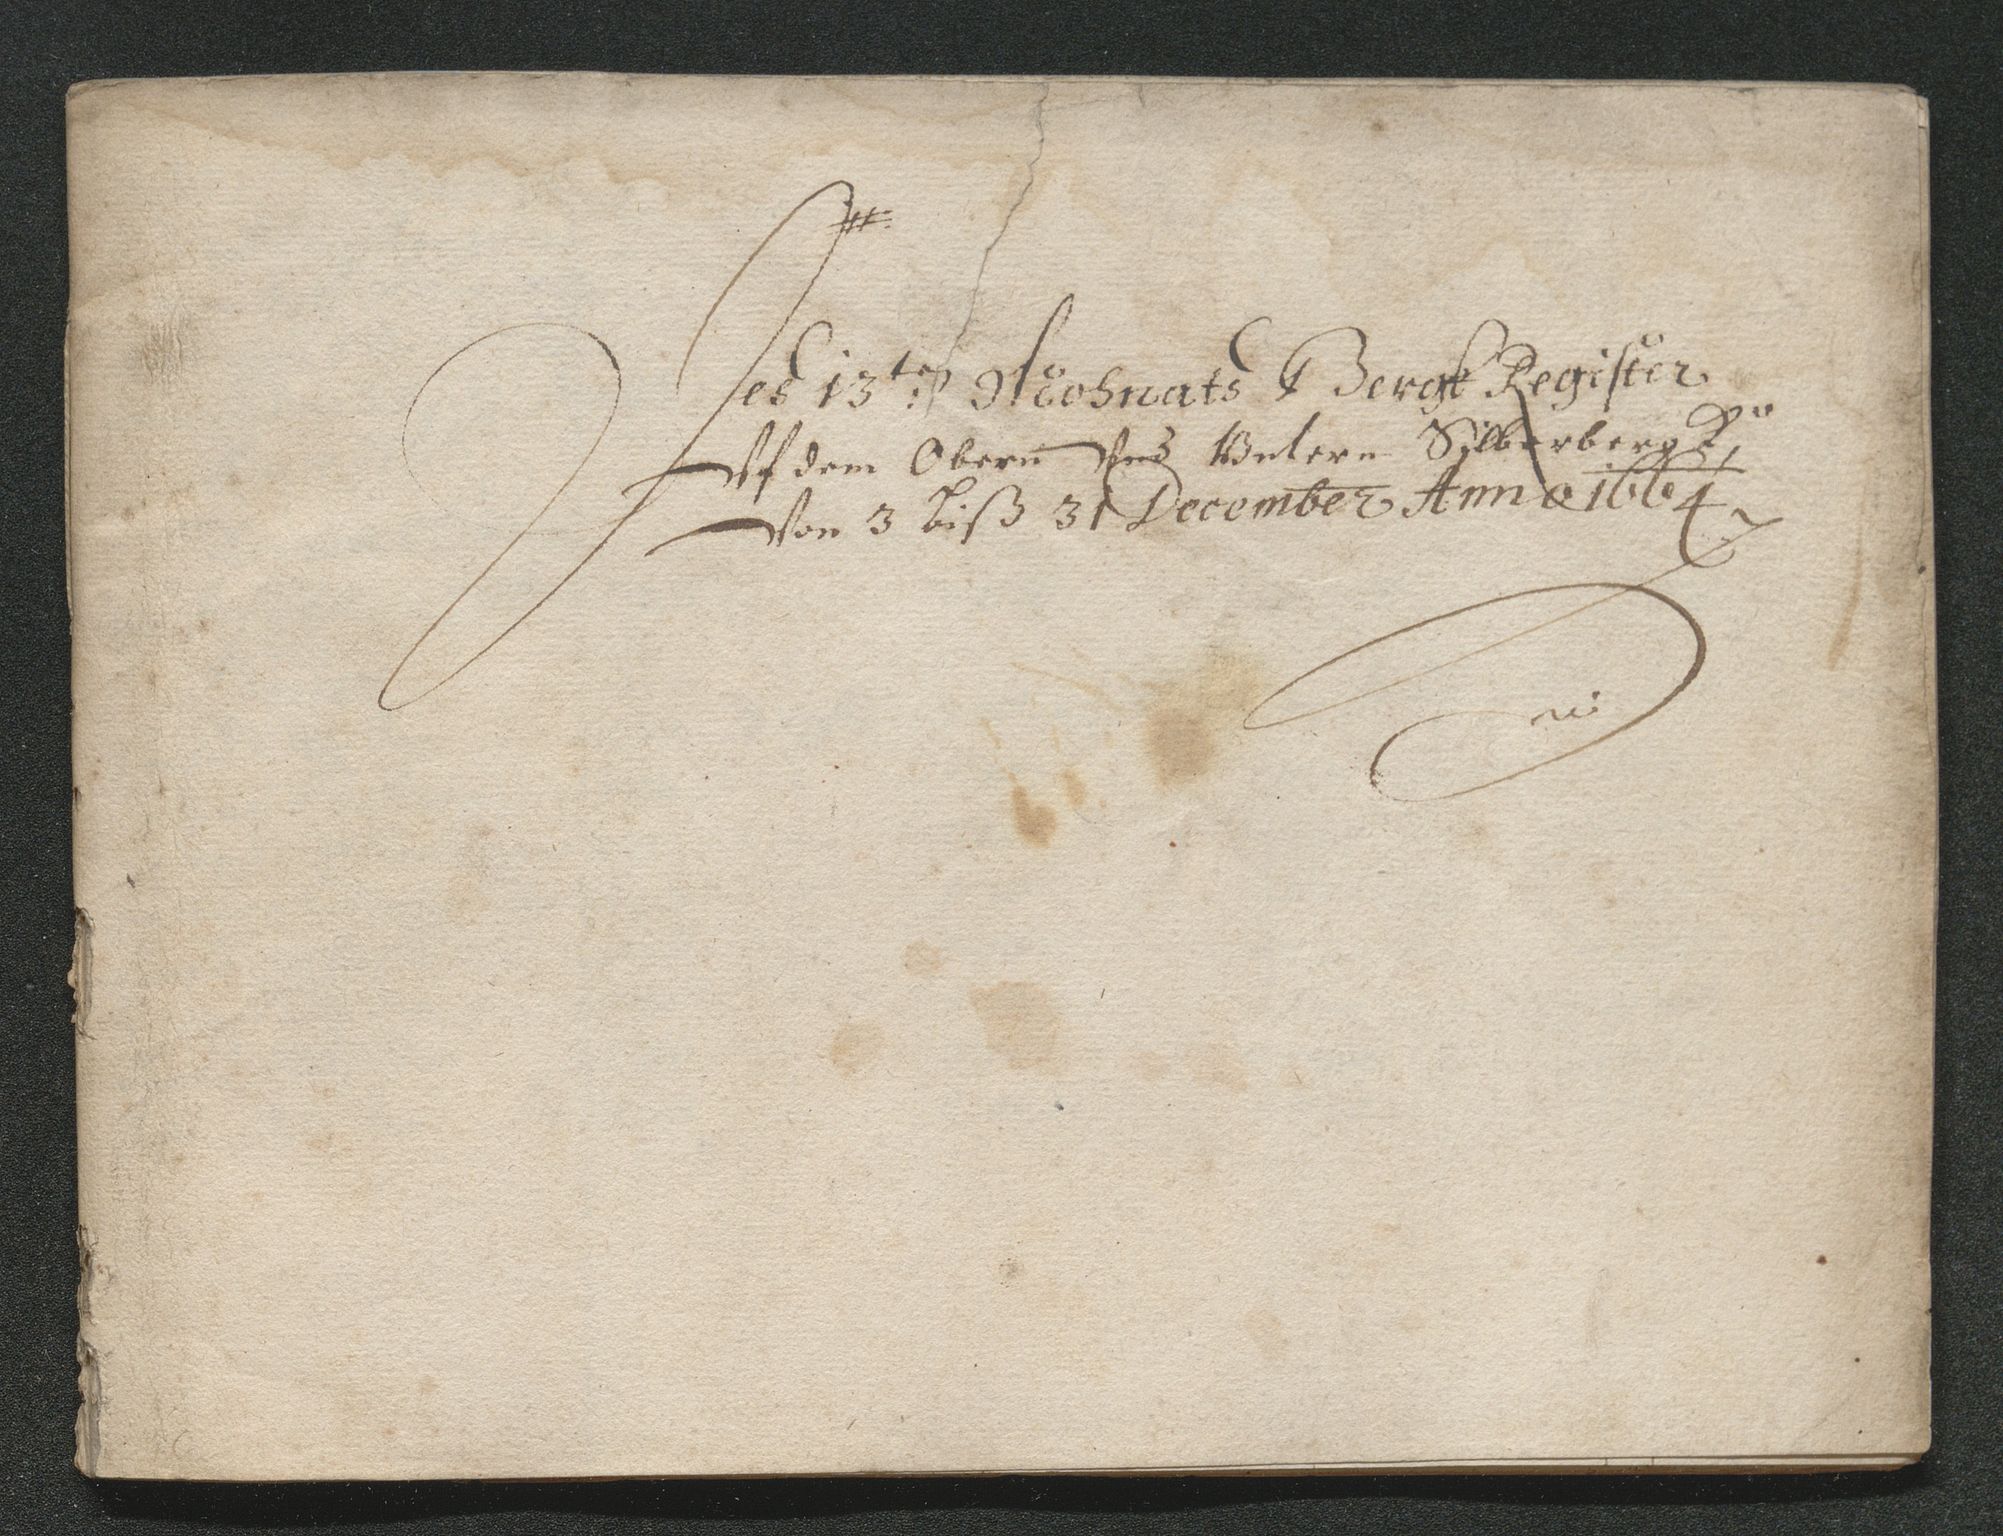 Des 13ten Mohnats Bergk Register
Vf dem Obern Vnd Vntern Silberberg
Von 3 biß 31 December Anno 1664